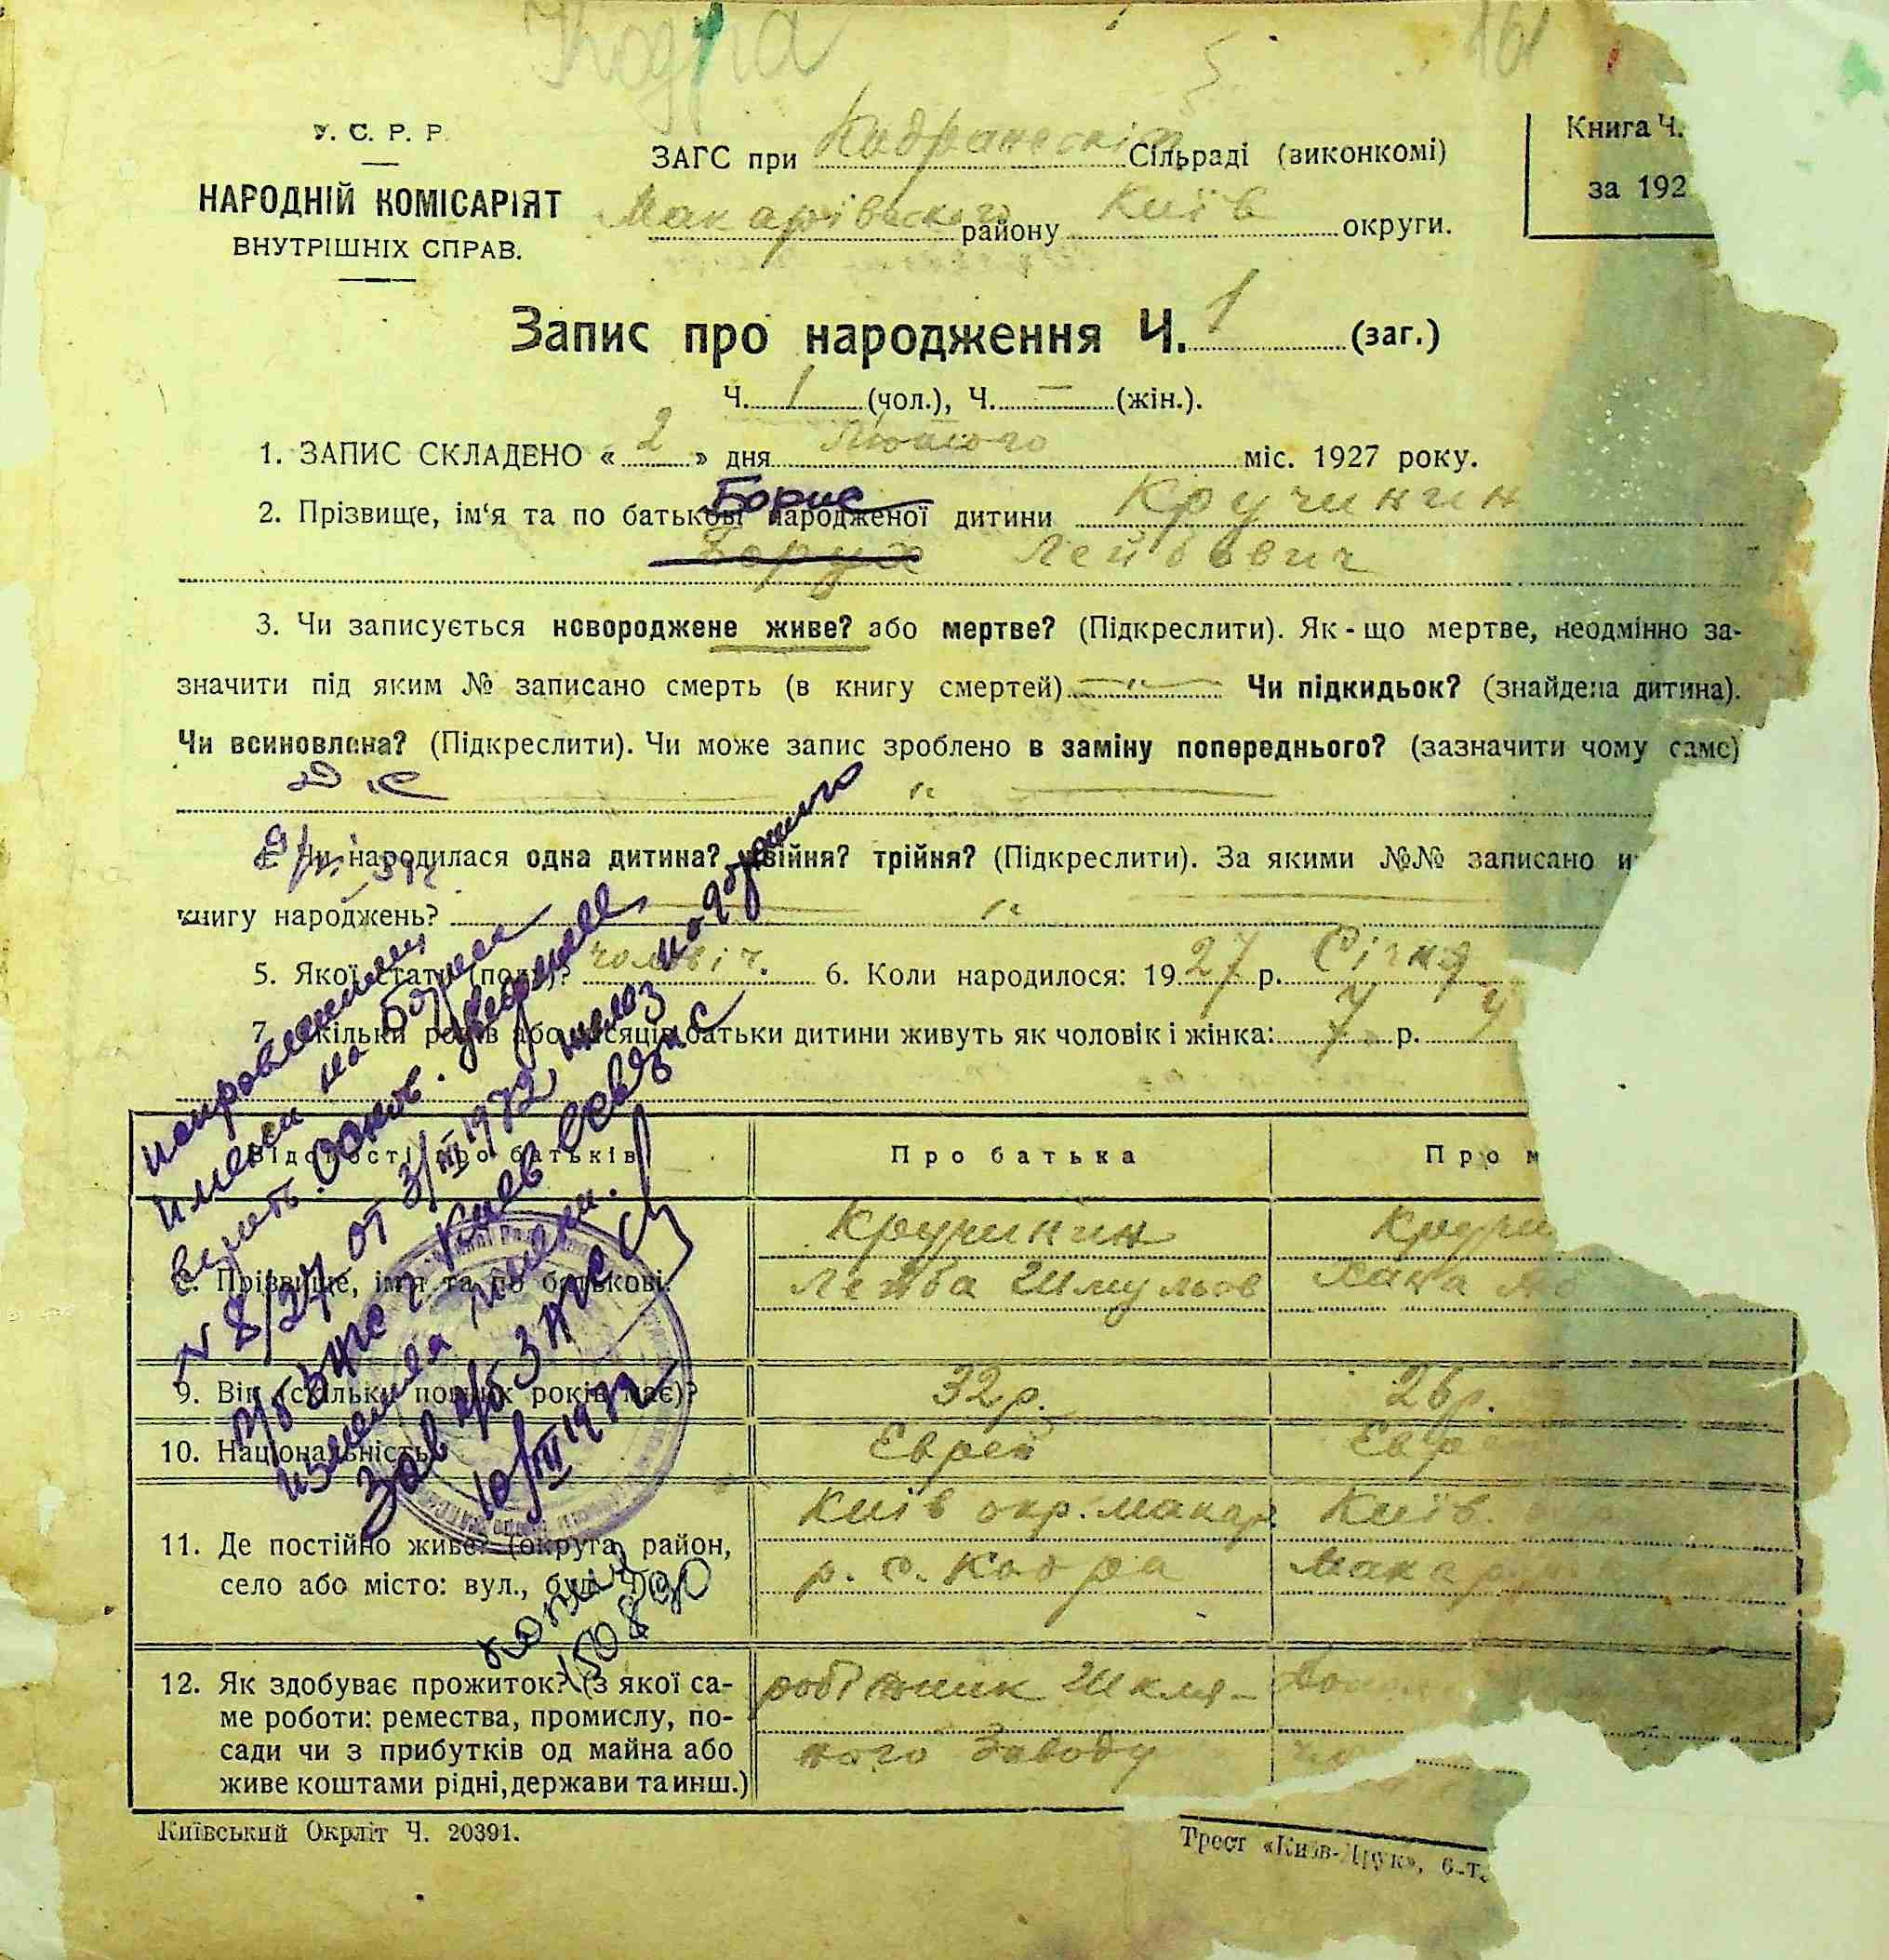 Кодра
161
У. С. Р. Р.
НАРОДНІЙ КОМІСАРІЯТ
ВНУТРІШНІХ СПРАВ.
ЗАГС при Сільраді (виконкомі)
району Київ округи.
Книга Ч.
за 192
Запис про народження Ч. 1 (заг.)
Ч. 1 (чол.), Ч. — (жін.).
1. ЗАПИС СКЛАДЕНО « 2 » дня Лютого міс. 1927 року.
Борис
2. Прізвище, ім‘я та по батькові народженої дитини Кручинин
Борух Лейбович
3. Чи записується новороджене живе? або мертве? (Підкреслити). Як-що мертве, неодмінно за-
значити під яким № записано смерть (в книгу смертей) Чи підкидьок? (знайдена дитина).
Чи всиновлена? (Підкреслити). Чи може запис зроблено в заміну попереднього? (зазначити чому саме)
народилася одна дитина? двійня? трійня? (Підкреслити). За якими №№ записано
книгу народжень?
5. Якої статі (полу)? чоловіч. 6. Коли народилося: 1927 р. Січня
7. кільки років або місяців батьки дитини живуть як чоловік і жінка: 7 р.
Відомості про батьків
Про батька
Про м
Прізвище, ім'я та по батькові.
Кручинин
Лейба Шмульов
Кручи
Хана
9. Вік (скільки повних років має)?
32 р.
26 р.
10. Національність
Єврей
Євр
11. Де постійно живе? (округа, район,
село або місто: вул., буд.
Київ окр. Макар
р. с. Кодра
Київ.
Макар
12. Як здобуває прожиток? (з якої са-
ме роботи: ремества, промислу, по-
сади чи з прибутків од майна або
живе коштами рідні, держави та инш.)
робітник Шкля-
ного Заводу
исправленному
имени на Борис
верить. Основ.
N 8/27 от 3/III 1972
г. Киев
имени.
Зав г/б ЗАГС
10/III 1972
150890
Київський Окрліт Ч. 20391.
Трест «Київ-Друк», 6-т.